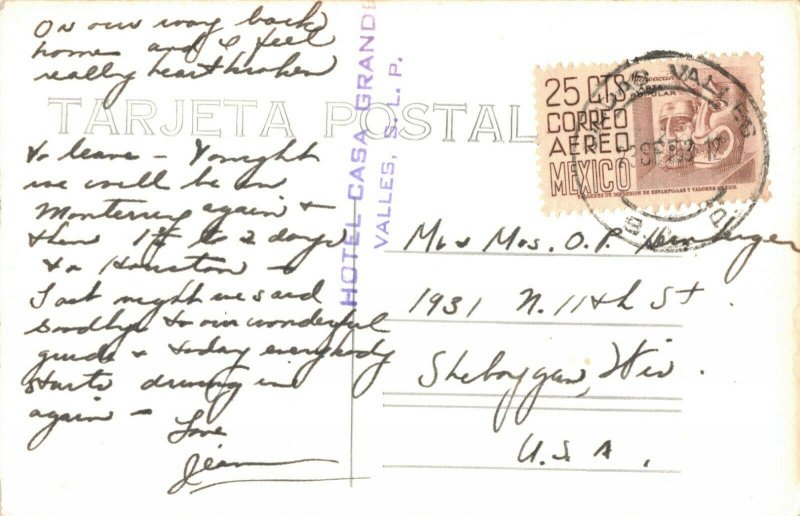 On our way back
home and I feel
really heartbroken
TARJETA POSTAL
to leave - Tonight
we will be in
Monterrey again +
then 1 1/2 to 2 days
to Houston -
Last night we said
goodbye to our wonderful
guide + today everybody
starts driving in
again -
Love
Jean
HOTEL CASA GRANDE
VALLES, S. L. P.
25 CTS
Michoacán
POPULAR
CORREO
AEREO
MEXICO
TALLERES DE IMPRESION DE ESTAMPILLAS Y VALORES-MEXICO.
VALLES
SEP 53
Mr + Mrs. O. P.
1931 N. 11th St.
Sheboygan, Wis.
U.S.A.